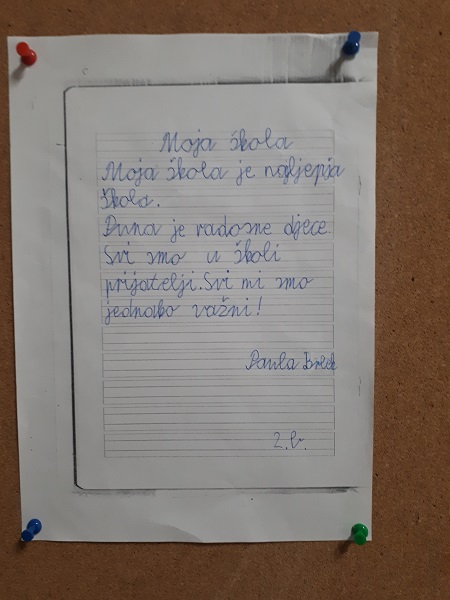 Moja škola
Moja škola je najljepša
škola.
Puna je radosne djece.
Svi smo u školi
prijatelji. Svi mi smo
jednako važni!
Paula
2.b.